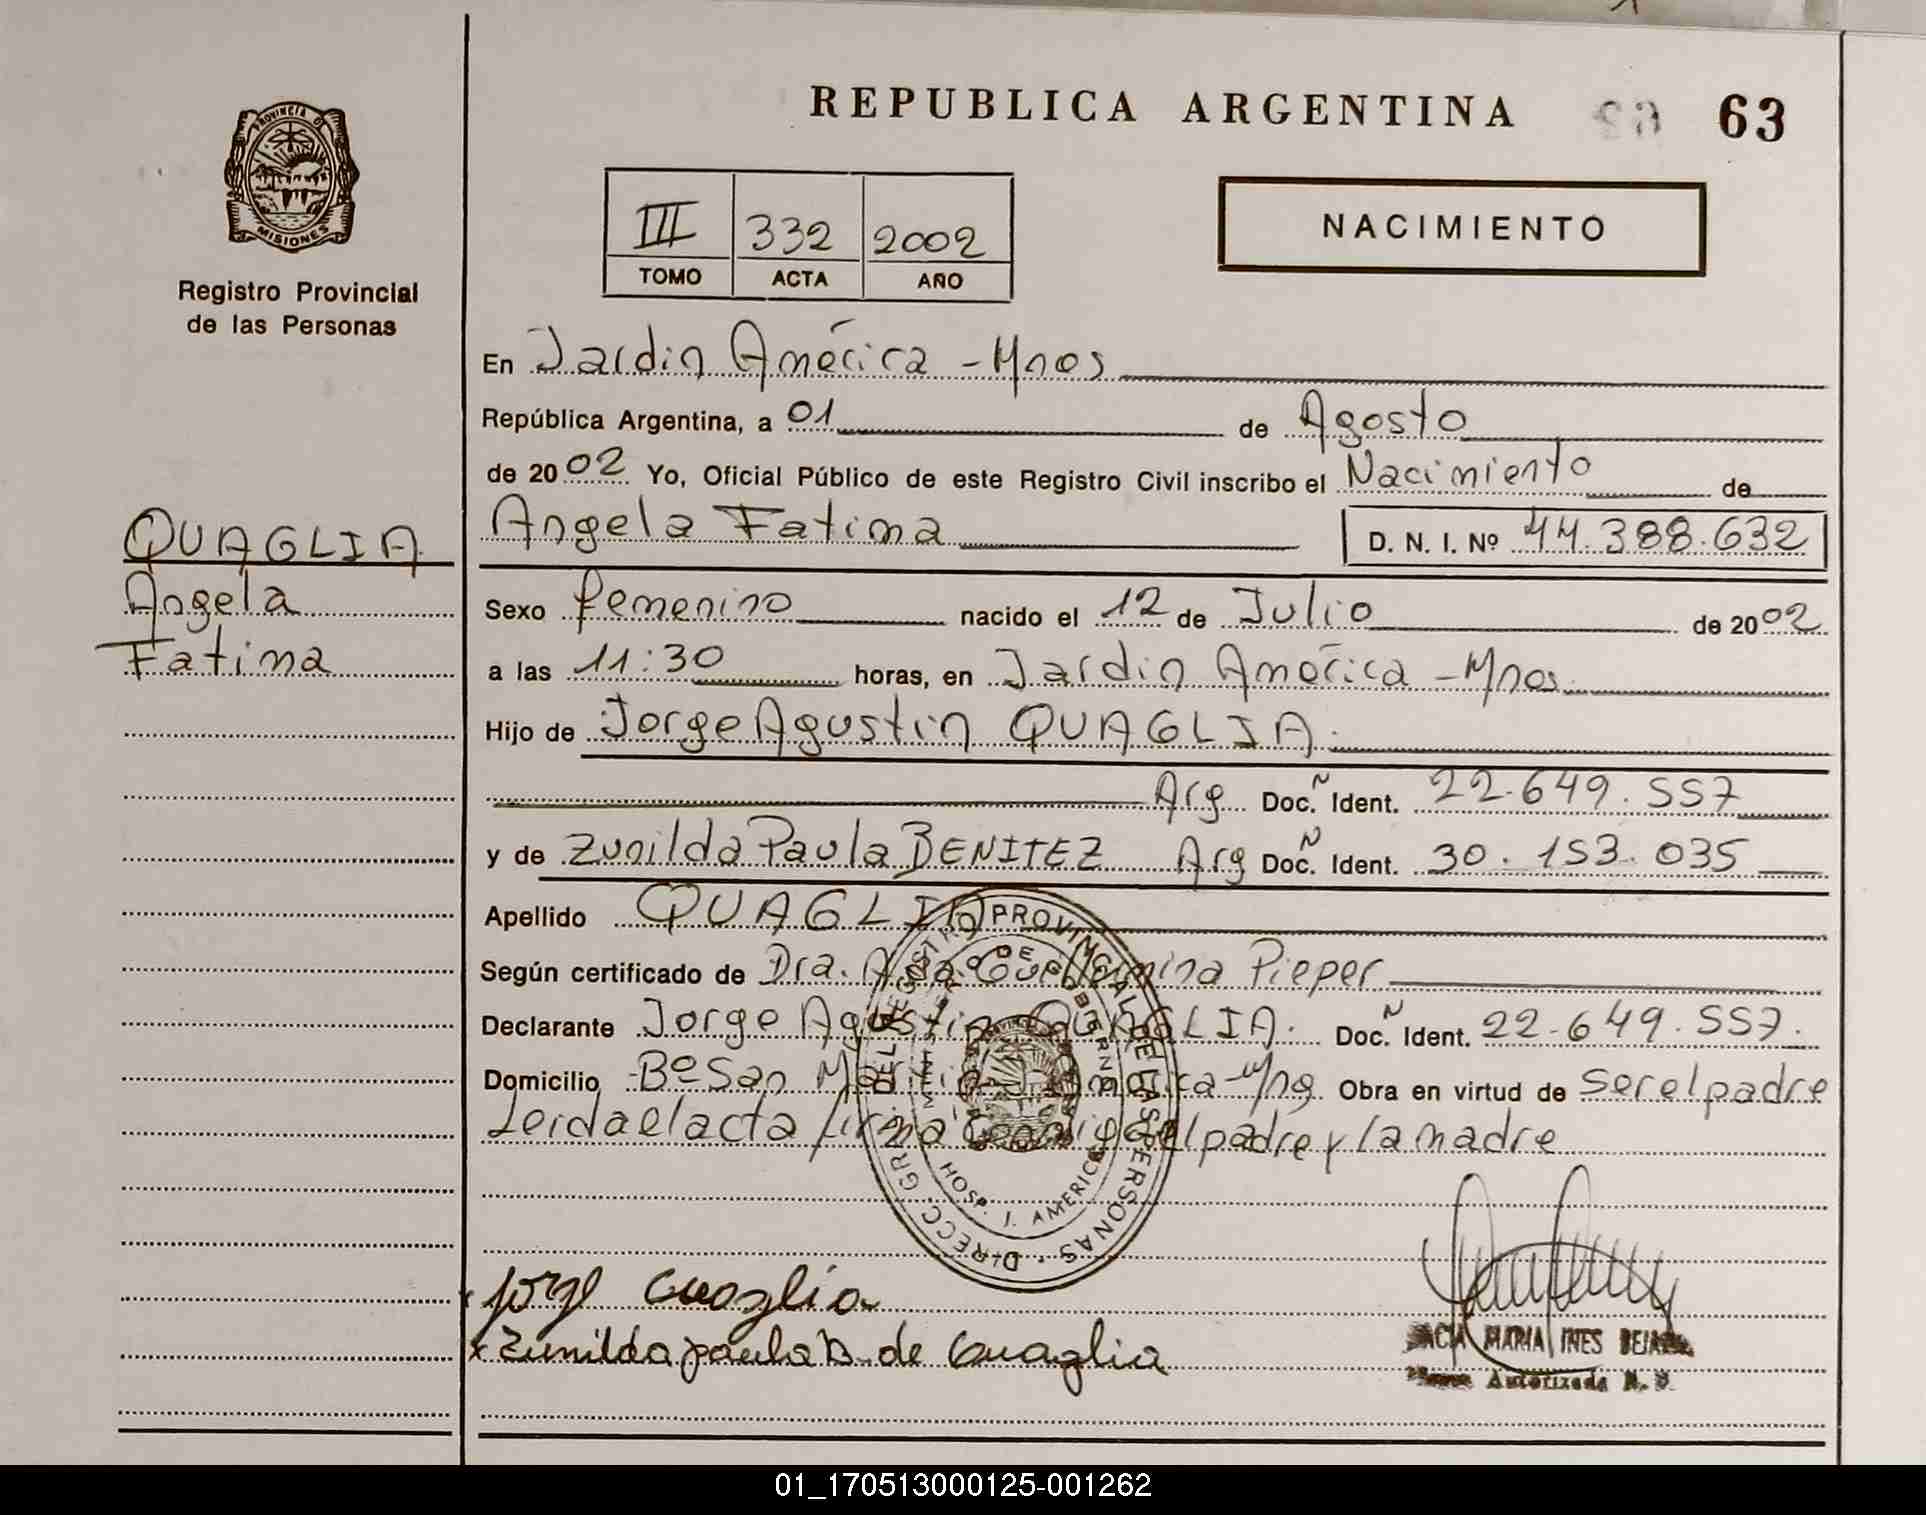 REPUBLICA ARGENTINA 63
PROVINCIA DE MISIONES
Registro Provincial
de las Personas
III 332 2002
TOMO ACTA AÑO
NACIMIENTO
En Jardin América - Mnes
República Argentina, a 01 de Agosto
de 2002 Yo, Oficial Público de este Registro Civil inscribo el Nacimiento de
QUAGLIA
Angela
Fatima
Angela Fatima D. N. I. Nº 44.388.632
Sexo femenino nacido el 12 de Julio de 2002
a las 11:30 horas, en Jardin América - Mnes
Hijo de Jorge Agustin QUAGLIA.
Arg Doc. N Ident. 22.649.557
y de Zunilda Paula BENITEZ Arg Doc. N Ident. 30.153.035
Apellido QUAGLIA
Según certificado de Dra. Pieper
Declarante Jorge Agustin QUAGLIA. Doc. N Ident. 22.649.557.
Domicilio Bº San Martin América - Obra en virtud de ser el padre
Leida el acta firma el padre y la madre
DIRECC. GRAL. DEL REGISTRO PROVINCIAL DE LAS PERSONAS
MINISTERIO DE GOBIERNO
HOSP. J. AMERICA
Jorge Quaglia
x Zunilda paula B. de Quaglia
MARIA INES
Autorizada
01_170513000125-001262